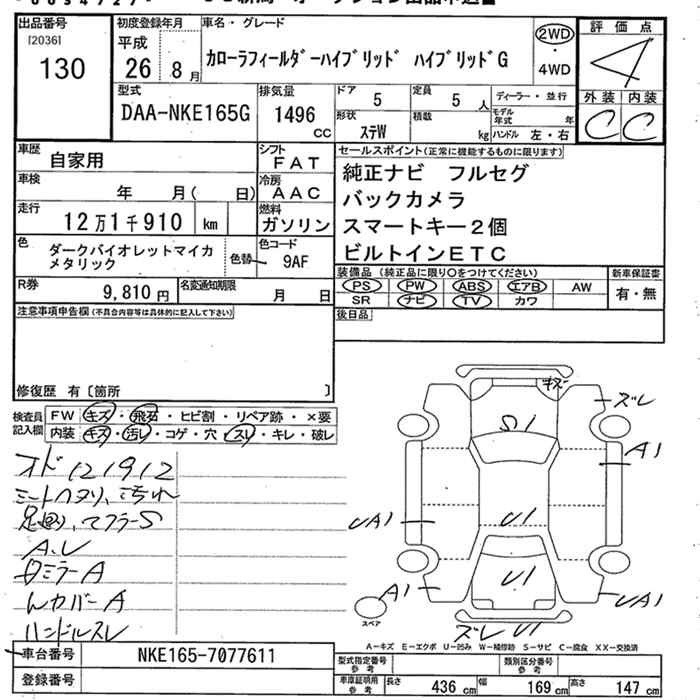 出品番号 [2036] 130
初度登録年月 平成 26年 8月
車名・グレード カローラフィールダーハイブリッド ハイブリッドG
2WD ・ 4WD
評価点 4
外装 C 内装 C
型式 DAA-NKE165G
排気量 1496 CC
ドア 5
定員 5 人
ディーラー・並行
形状 ステW
積載 kg
モデル年式 年
ハンドル 左・右
車歴 自家用
シフト FAT
車検 年 月( 日)
冷房 AAC
走行 12万1千910 km
燃料 ガソリン
色 ダークバイオレットマイカメタリック
色替
色コード 9AF
R券 9,810円
名変通知期限 月 日
セールスポイント(正常に機能するものに限ります)
純正ナビ フルセグ
バックカメラ
スマートキー2個
ビルトインETC
装備品 (純正品に限り○をつけてください)
PS PW ABS エアB AW
SR ナビ TV カワ
新車保証書 有・無
後日品
注意事項申告欄(不具合内容等は具体的に記入して下さい)
修復歴 有〔箇所 〕
検査員記入欄
FW キズ・飛石・ヒビ割・リペア跡・×要
内装 キズ・汚レ・コゲ・穴・スレ・キレ・破レ
オド 121912
シートヘタリ、汚れ
足廻り、マフラーS
A.U
ミラーA
カバーA
ハンドルスレ
キズ
ズレ
S1
A1
UA1
U1
U1
A1
UA1
ズレ U1
スペア
A-キズ E-エクボ U-凹み W-補修跡 S-サビ C-腐食 XX-交換済
車台番号 NKE165-7077611
登録番号
型式指定番号 参考
類別区分番号 参考
車庫証明用 参考 長さ 436 cm 幅 169 cm 高さ 147 cm